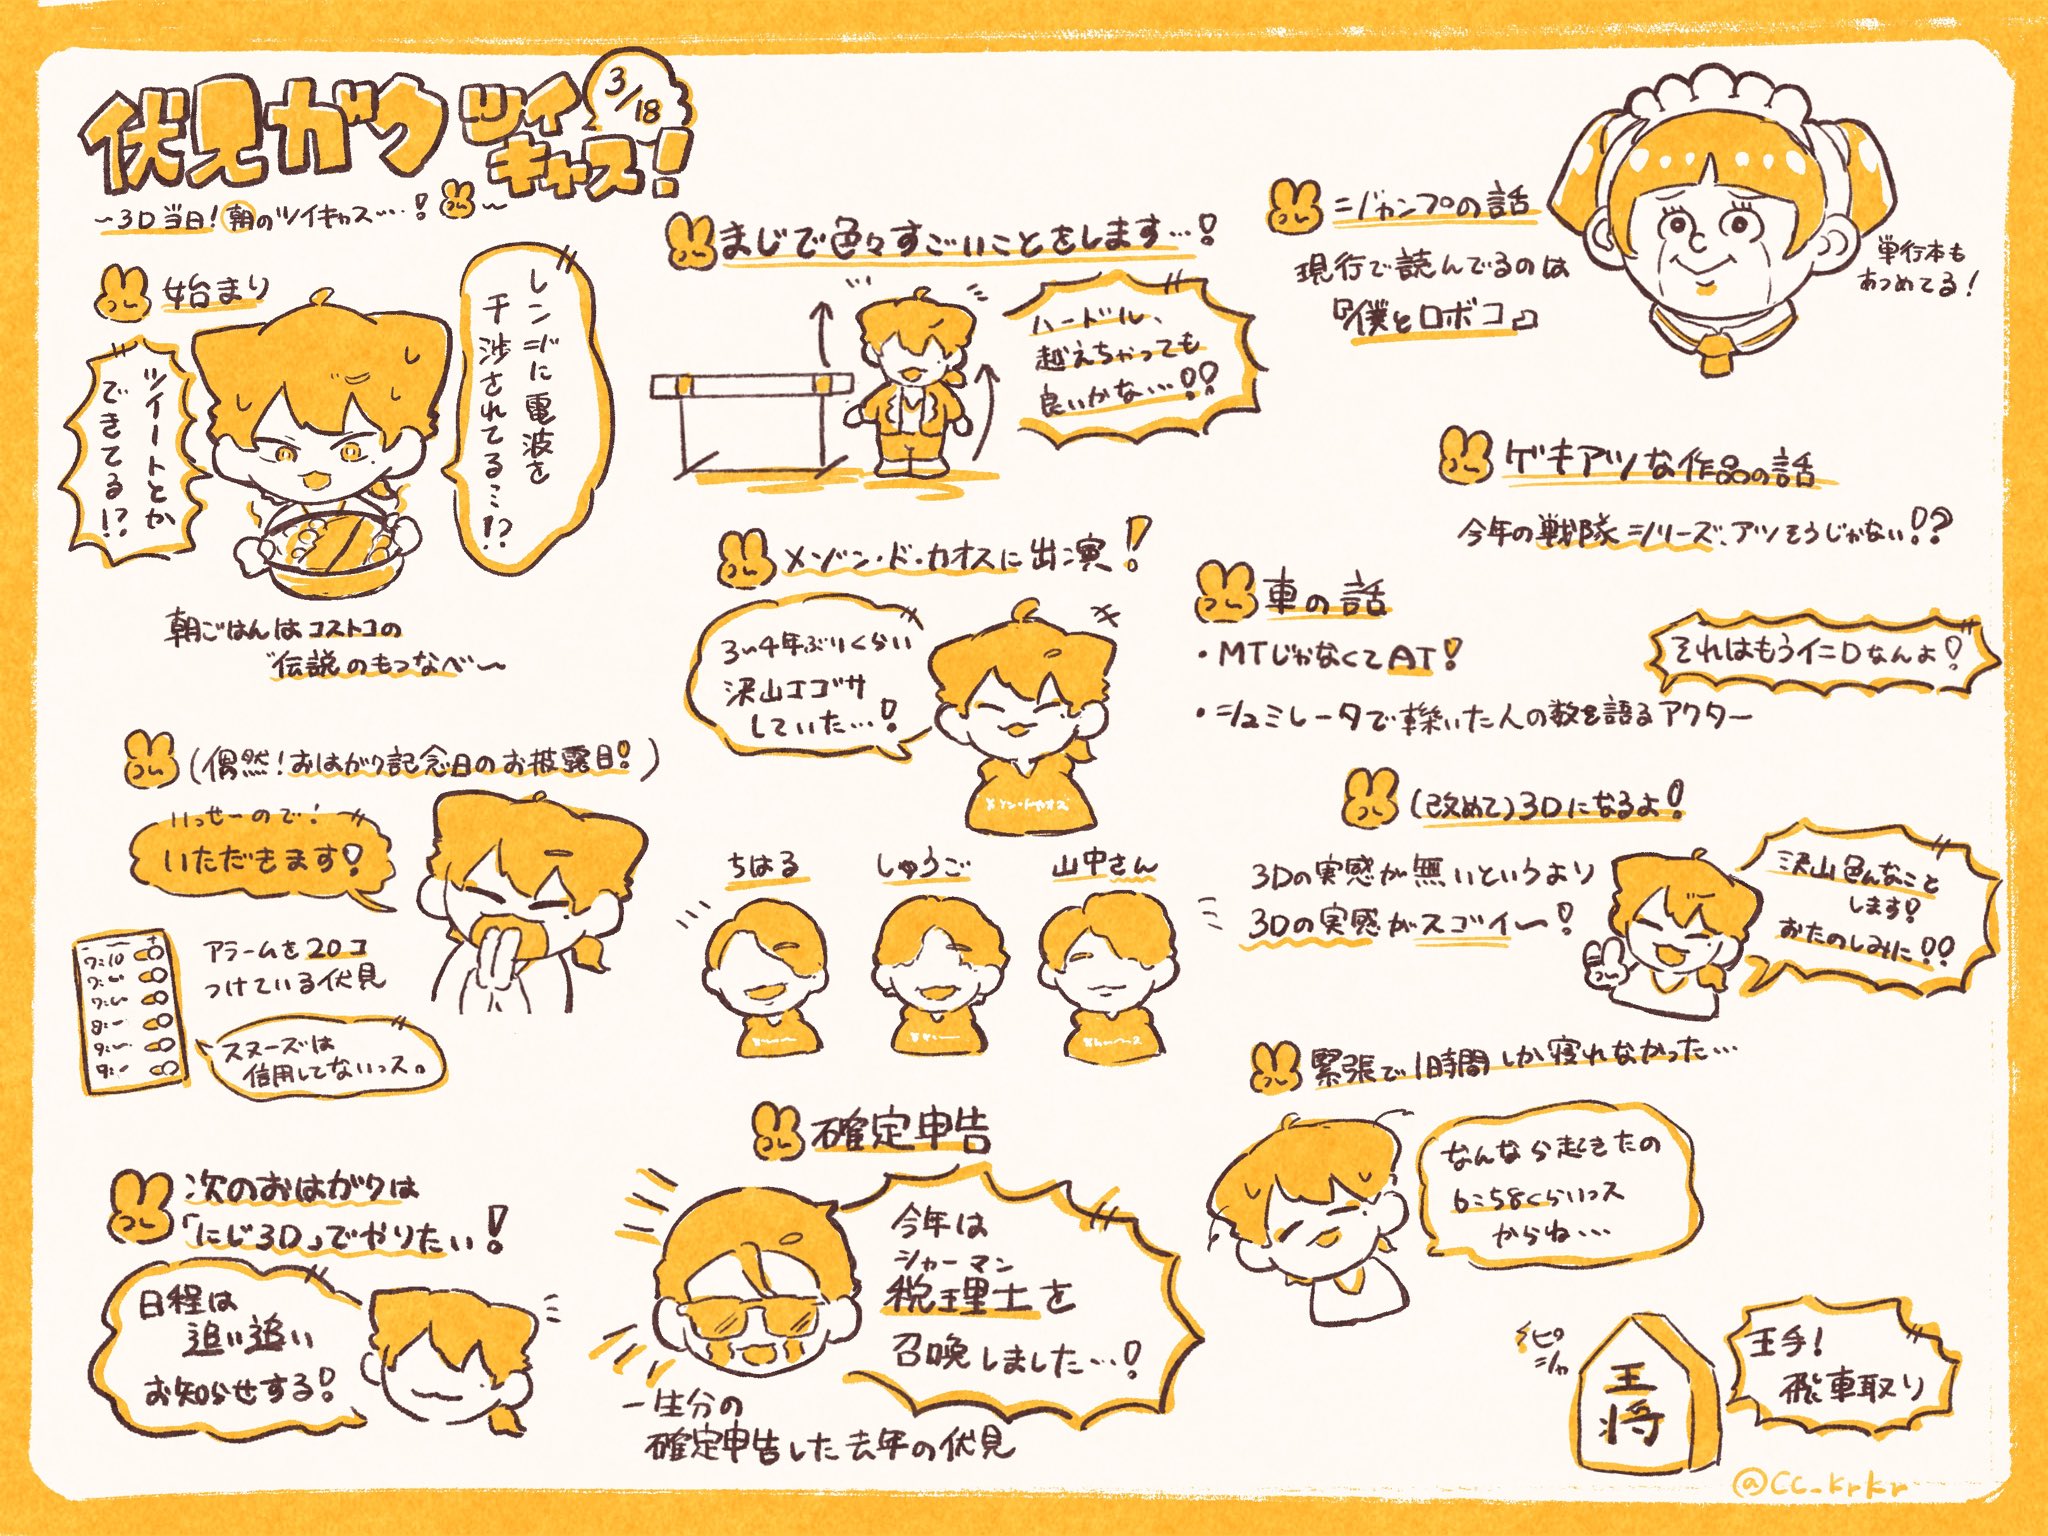 伏見ガク ツイキャス!
3/18
~3D当日!朝のツイキャス…!~
始まり
レンジに電波を
干渉されてる…!?
ツイートとか
できてる!?
朝ごはんはコストコの
伝説のもつなべ~
(偶然!おはガク記念日のお披露目!)
いっせーので!
いただきます!
7:10
アラームを20コ
つけている伏見
スヌーズは
信用してないっス。
次のおはガクは
「にじ3D」でやりたい!
日程は
追い追い
お知らせする!
まじで色々すごいことをします…!
ハードル、
越えちゃっても
良いかな…!!
メゾン・ド・カオスに出演!
3~4年ぶりくらい
沢山エゴサ
していた…!
メゾン・ド・カオス
ちはる
しゅうご
山中さん
確定申告
今年は
シャーマン
税理士を
召喚しました…!
一生分の
確定申告した去年の伏見
ジャンプの話
現行で読んでるのは
『僕とロボコ』
単行本も
あつめてる!
ゲキアツな作品の話
今年の戦隊シリーズ、アツそうじゃない!?
車の話
・MTじゃなくてAT!
それはもうイニDなんよ!
・シュミレータで轢いた人の数を語るアクター
(改めて)3Dになるよ!
3Dの実感が無いというより
3Dの実感がスゴイ~!
沢山色んなこと
します!
おたのしみに!!
緊張で1時間しか寝れなかった…
なんなら起きたの
6:58くらいっス
からね…
ピシャ
王将
王手!
飛車取り
@CC_krkr